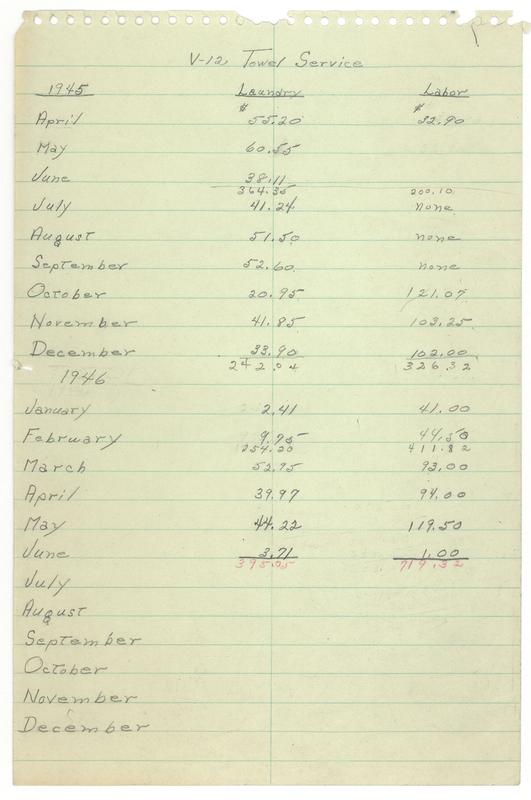 V-12 Towel Service
1945 Laundry Labor
$ $
April 55.20 32.90
May 60.55
June 38.11
364.35 200.10
July 41.24 none
August 51.50 none
September 52.60 none
October 20.95 121.07
November 41.85 103.25
December 33.90 102.00
242.04 326.32
1946
January 2.41 41.00
February 9.75 44.50
254.20 411.82
March 52.95 93.00
April 39.97 94.00
May 44.22 119.50
June 3.71 1.00
395.05 719.32
July
August
September
October
November
December